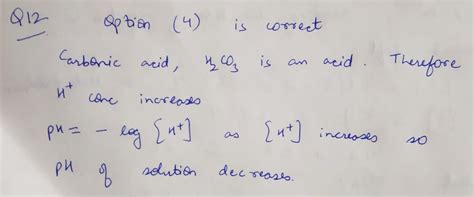 Q12 Option (4) is correct
Carbonic acid, H₂CO₃ is an acid. Therefore
H⁺ conc increases
pH = - log [H⁺] as [H⁺] increases so
pH of solution decreases.